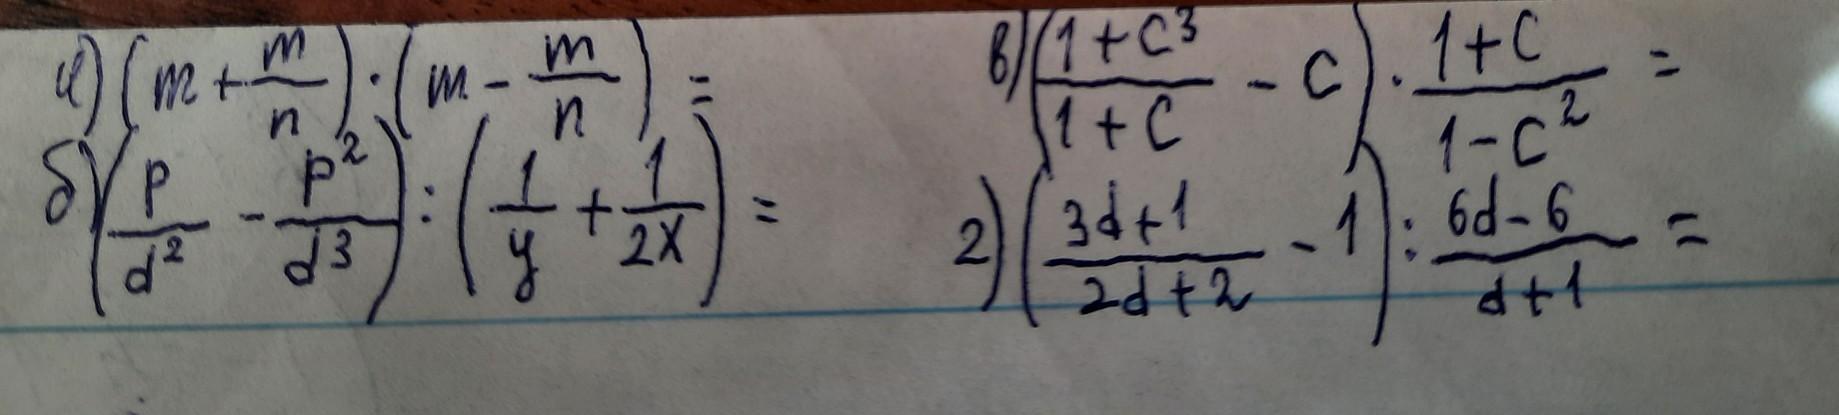 а) (m + m/n) · (m - m/n) =
б) (p/d² - p²/d³) : (1/y + 1/2x) =
в) ((1+c³)/(1+c) - c) · (1+c)/(1-c²) =
г) ((3d+1)/(2d+2) - 1) : (6d-6)/(d+1) =